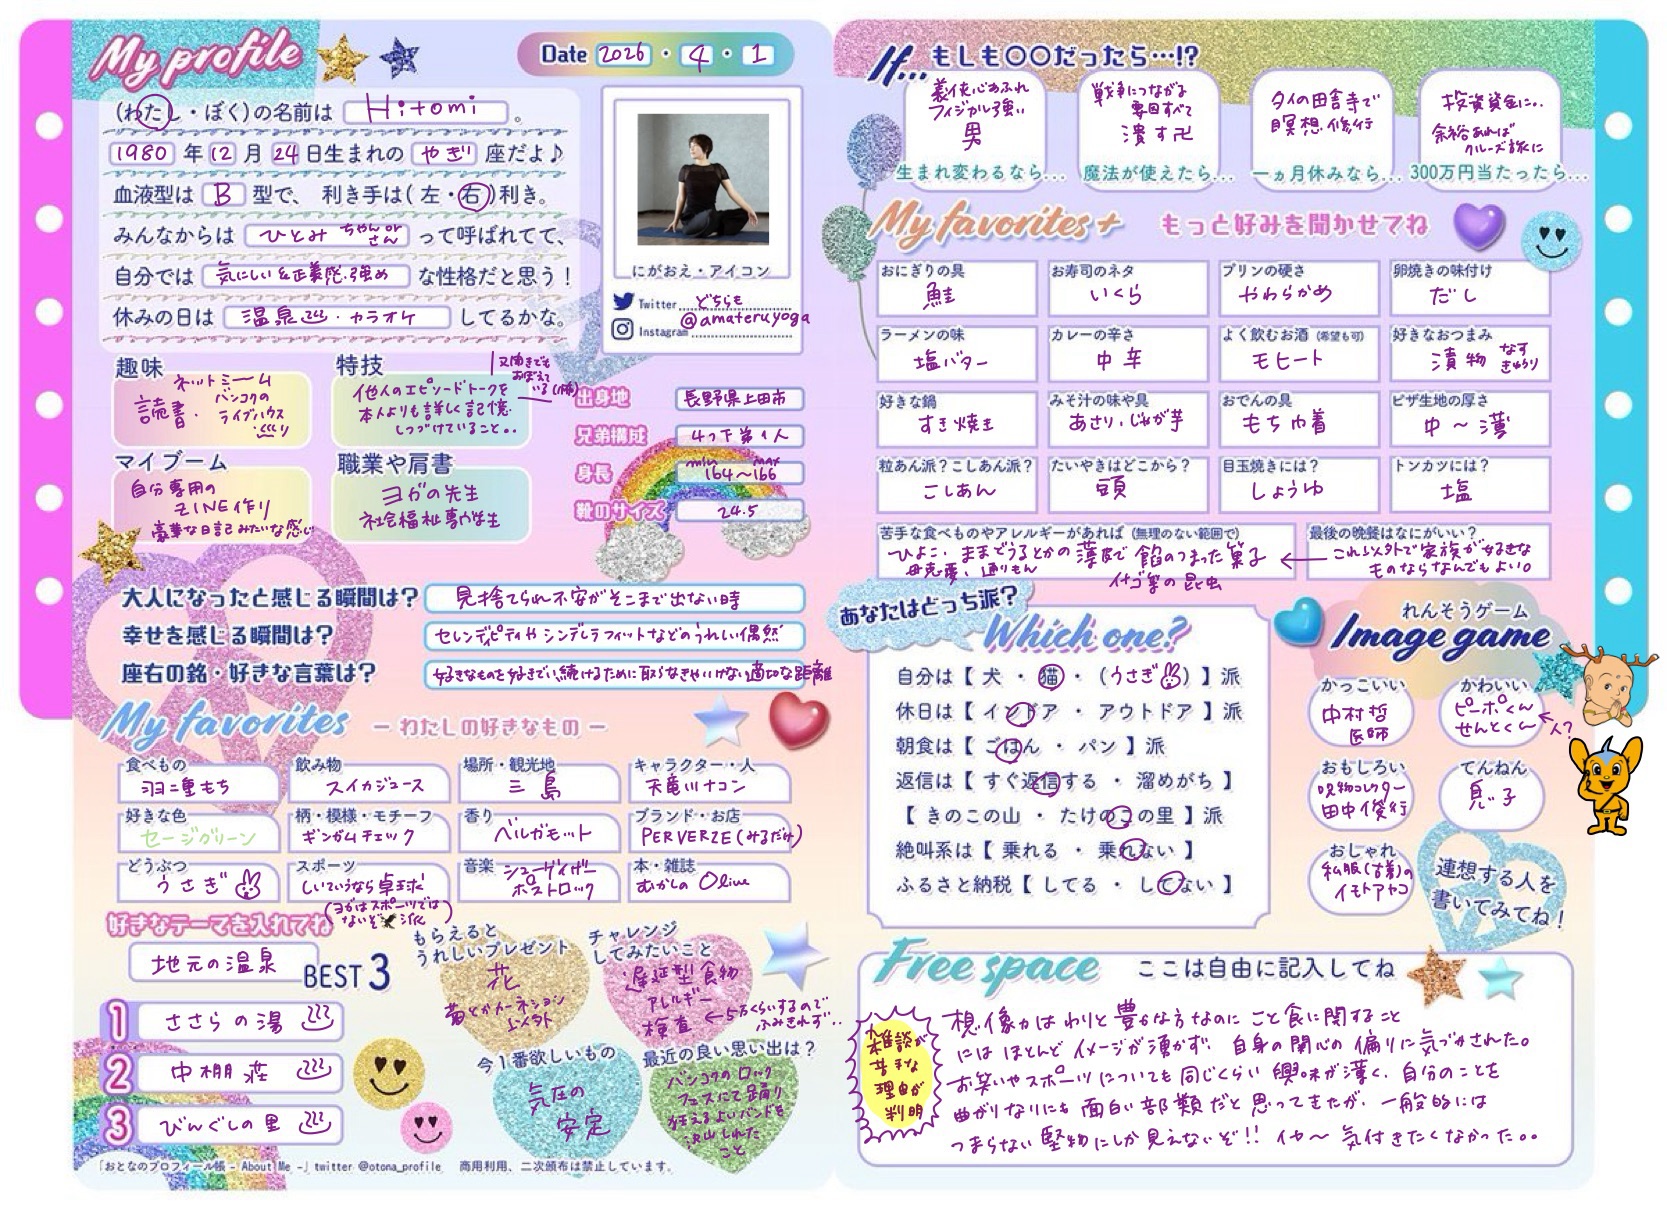 My profile
Date 2026・4・1
(わたし・ぼく)の名前は Hitomi 。
1980 年 12 月 24 日生まれの やぎ 座だよ♪
血液型は B 型で、 利き手は( 左・右 )利き。
みんなからは ひとみ ちゃん or さん って呼ばれてて、
自分では 気にしい&正義感強め な性格だと思う！
休みの日は 温泉♨・カラオケ してるかな。
にがおえ・アイコン
Twitter どちらも
Instagram @amateruyoga
趣味
ネットミーム
読書・
バンコクの
ライブハウス
巡り
特技
他人のエピソードトークを
本人よりも詳しく記憶
しつづけていること。。
マイブーム
自分専用の
ZINE作り
豪華な日記みたいな感じ
職業や肩書
ヨガの先生
社会福祉専学生
出身地 長野県上田市
兄弟構成 4つ下弟1人
身長 min 164〜166 max
靴のサイズ 24.5
大人になったと感じる瞬間は？ 見捨てられ不安がそこまで出ない時
幸せを感じる瞬間は？ セレンディピティやシンデレラフィットなどのうれしい偶然
座右の銘・好きな言葉は？ 好きなものを好きでい続けるために取らなきゃいけない適切な距離
My favorites －わたしの好きなもの－
食べもの 羽二重もち
飲み物 スイカジュース
場所・観光地 三島
キャラクター・人 天竜川ナコン
好きな色 セージグリーン
柄・模様・モチーフ ギンガムチェック
香り ベルガモット
ブランド・お店 PERVERZE(みるだけ)
どうぶつ うさぎ
スポーツ しいていうなら卓球
(ヨガはスポーツでは
ないぞ 派)
音楽 シューゲイザー
ポストロック
本・雑誌 むかしの Olive
好きなテーマを入れてね
地元の温泉 BEST 3
1 ささらの湯 ♨
2 中棚荘 ♨
3 びんぐしの里 ♨
もらえると
うれしいプレゼント
花
菊とかカーネーション
以外
チャレンジ
してみたいこと
遅延型食物
アレルギー
検査 ←5万くらいするので
ふみきれず..
今1番欲しいもの
気圧の
安定
最近の良い思い出は？
バンコクのロック
フェスにて踊り
狂えるよいバンドを
沢山しれた
こと
「おとなのプロフィール帳 - About Me -」twitter @otona_profile 商用利用、二次頒布は禁止しています。
If... もしも〇〇だったら…!?
義侠心あふれ
フィジカル強い
男
生まれ変わるなら...
戦争につながる
要因すべて
潰す卍
魔法が使えたら...
タイの田舎寺で
瞑想修行
一ヵ月休みなら...
投資資金に..
余裕あれば
クルーズ旅に
300万円当たったら...
My favorites + もっと好みを聞かせてね
おにぎりの具 鮭
お寿司のネタ いくら
プリンの硬さ やわらかめ
卵焼きの味付け だし
ラーメンの味 塩バター
カレーの辛さ 中辛
よく飲むお酒 (希望も可) モヒート
好きなおつまみ 漬物 なす きゅうり
好きな鍋 すき焼き
みそ汁の味や具 あさり、じゃが芋
おでんの具 もち巾着
ピザ生地の厚さ 中〜薄
粒あん派？こしあん派？ こしあん
たいやきはどこから？ 頭
目玉焼きには？ しょうゆ
トンカツには？ 塩
苦手な食べものやアレルギーがあれば (無理のない範囲で)
ひよこ、ままどうるとかの 薄皮で 餡のつまった菓子
母恵夢、通りもん
イナゴ等の昆虫
最後の晩餐はなにがいい？
← これ以外で家族が好きな
ものならなんでもよい。
あなたはどっち派？
Which one?
自分は【 犬 ・ 猫 ・ (うさぎ) 】派
休日は【 インドア ・ アウトドア 】派
朝食は【 ごはん ・ パン 】派
返信は【 すぐ返信する ・ 溜めがち 】
【 きのこの山 ・ たけのこの里 】派
絶叫系は【 乗れる ・ 乗れない 】
ふるさと納税【 してる ・ してない 】
れんそうゲーム
Image game
かっこいい
中村哲
医師
かわいい
ピーポくん
せんとくん ←人？
おもしろい
呪物コレクター
田中俊行
てんねん
おしゃれ
私服(古着)の
イモトアヤコ
連想する人を
書いてみてね！
Free space ここは自由に記入してね
雑談が
苦手な
理由が
判明
想像力はわりと豊かな方なのに こと食に関すること
にはほとんどイメージが湧かず、自身の関心の偏りに気づかされた。
お笑いやスポーツについても同じくらい興味が薄く、自分のことを
曲がりなりにも面白い部類だと思ってきたが、一般的には
つまらない堅物にしか見えないぞ!! イヤ〜 気付きたくなかった。。